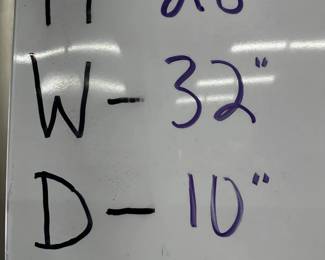 W- 32"
D- 10"